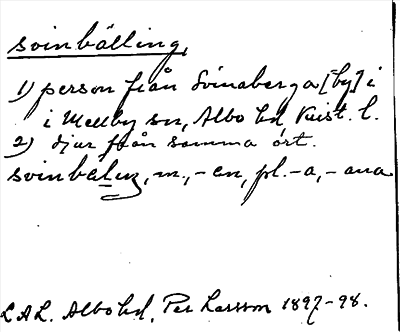 svinbälling,
1) person från Svinaberga [by] i
i Mellby sn, Albo hd, Krist. l.
2) djur från samma ort.
svinbæluz, m., -en, pl. -a, -ana
L.A.L. Albo hd. Per Larsson 1897-98.